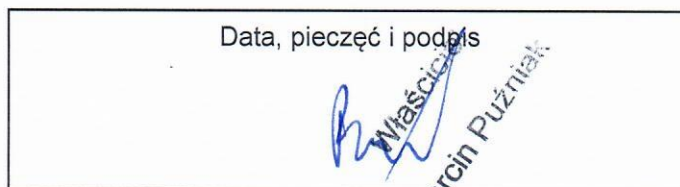 Data, pieczęć i podpis
Właściciel
rcin Puźniak